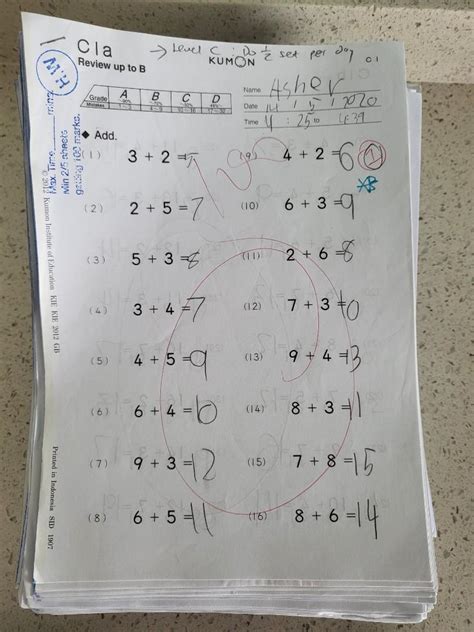 C1a → Level C : Do ½ set per day
Review up to B KUMON C 1
Name Asher
Grade A B C D
Date 14 / 5 / 2020
Time 4 : 25 to 4:39
Max. Time mins
Min 2/5 sheets
getting 100 marks.
◆ Add.
(1) 3 + 2 = 5 (9) 4 + 2 = 6
(2) 2 + 5 = 7 (10) 6 + 3 = 9
(3) 5 + 3 = 8 (11) 2 + 6 = 8
(4) 3 + 4 = 7 (12) 7 + 3 = 10
(5) 4 + 5 = 9 (13) 9 + 4 = 13
(6) 6 + 4 = 10 (14) 8 + 3 = 11
(7) 9 + 3 = 12 (15) 7 + 8 = 15
(8) 6 + 5 = 11 (16) 8 + 6 = 14
© 2012 Kumon Institute of Education KIE KIE 2012 GB
Printed in Indonesia SID 1907